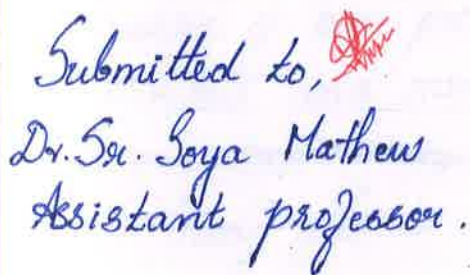 Submitted to,
Dr. Sr. Soya Mathew
Assistant professor.